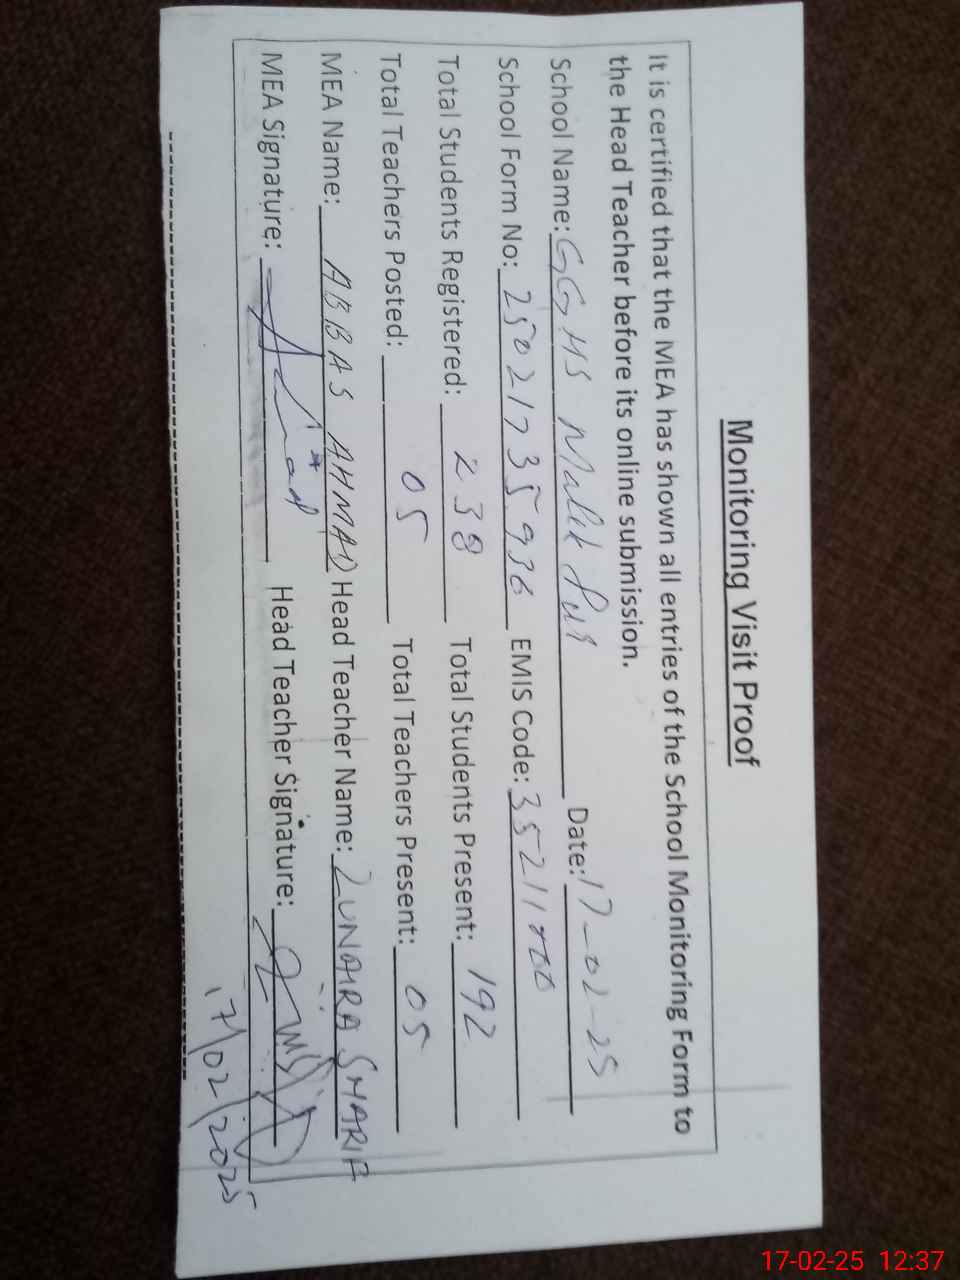 Monitoring Visit Proof
It is certified that the MEA has shown all entries of the School Monitoring Form to
the Head Teacher before its online submission.
School Name: GGHS Malik Pur Date: 17-02-25
School Form No: 25021735936 EMIS Code: 35211
Total Students Registered: 238 Total Students Present: 192
Total Teachers Posted: 05 Total Teachers Present: 05
MEA Name: ABBAS AHMAD Head Teacher Name: ZUNAIRA SHARIF
MEA Signature: Head Teacher Signature:
17/02/2025
17-02-25 12:37